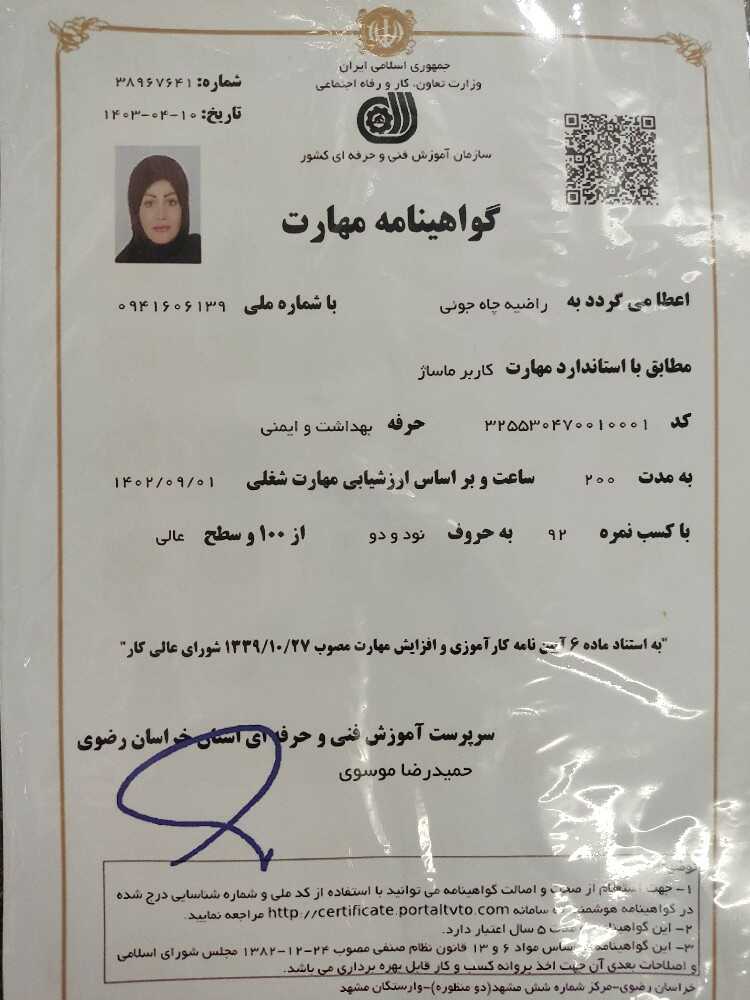 جمهوری اسلامی ایران
وزارت تعاون، کار و رفاه اجتماعی
سازمان آموزش فنی و حرفه ای کشور
شماره: ۳۸۹۶۷۶۴۱
تاریخ: ۱۴۰۳-۰۴-۱۰
گواهینامه مهارت
اعطا می گردد به راضیه چاه جونی با شماره ملی ۰۹۴۱۶۰۶۱۳۹
مطابق با استاندارد مهارت کاربر ماساژ
کد ۳۲۵۵۳۰۴۷۰۰۱۰۰۰۱ حرفه بهداشت و ایمنی
به مدت ۲۰۰ ساعت و بر اساس ارزشیابی مهارت شغلی ۱۴۰۲/۰۹/۰۱
با کسب نمره ۹۲ به حروف نود و دو از ۱۰۰ و سطح عالی
"به استناد ماده ۶ آیین نامه کارآموزی و افزایش مهارت مصوب ۱۳۳۹/۱۰/۲۷ شورای عالی کار"
سرپرست آموزش فنی و حرفه ای استان خراسان رضوی
حمیدرضا موسوی
۱- جهت استعلام از صحت و اصالت گواهینامه می توانید با استفاده از کد ملی و شماره شناسایی درج شده
در گواهینامه هوشمند به سامانه http://certificate.portaltvto.com مراجعه نمایید.
۲- این گواهینامه مدت ۵ سال اعتبار دارد.
۳- این گواهینامه بر اساس مواد ۶ و ۱۳ قانون نظام صنفی مصوب ۲۴-۱۲-۱۳۸۲ مجلس شورای اسلامی
و اصلاحات بعدی آن جهت اخذ پروانه کسب و کار قابل بهره برداری می باشد.
خراسان رضوی-مرکز شماره شش مشهد(دو منظوره)-وارستگان مشهد